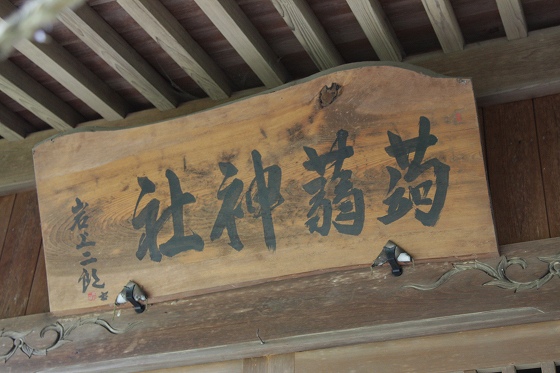 蒟蒻神社
岩上二郎